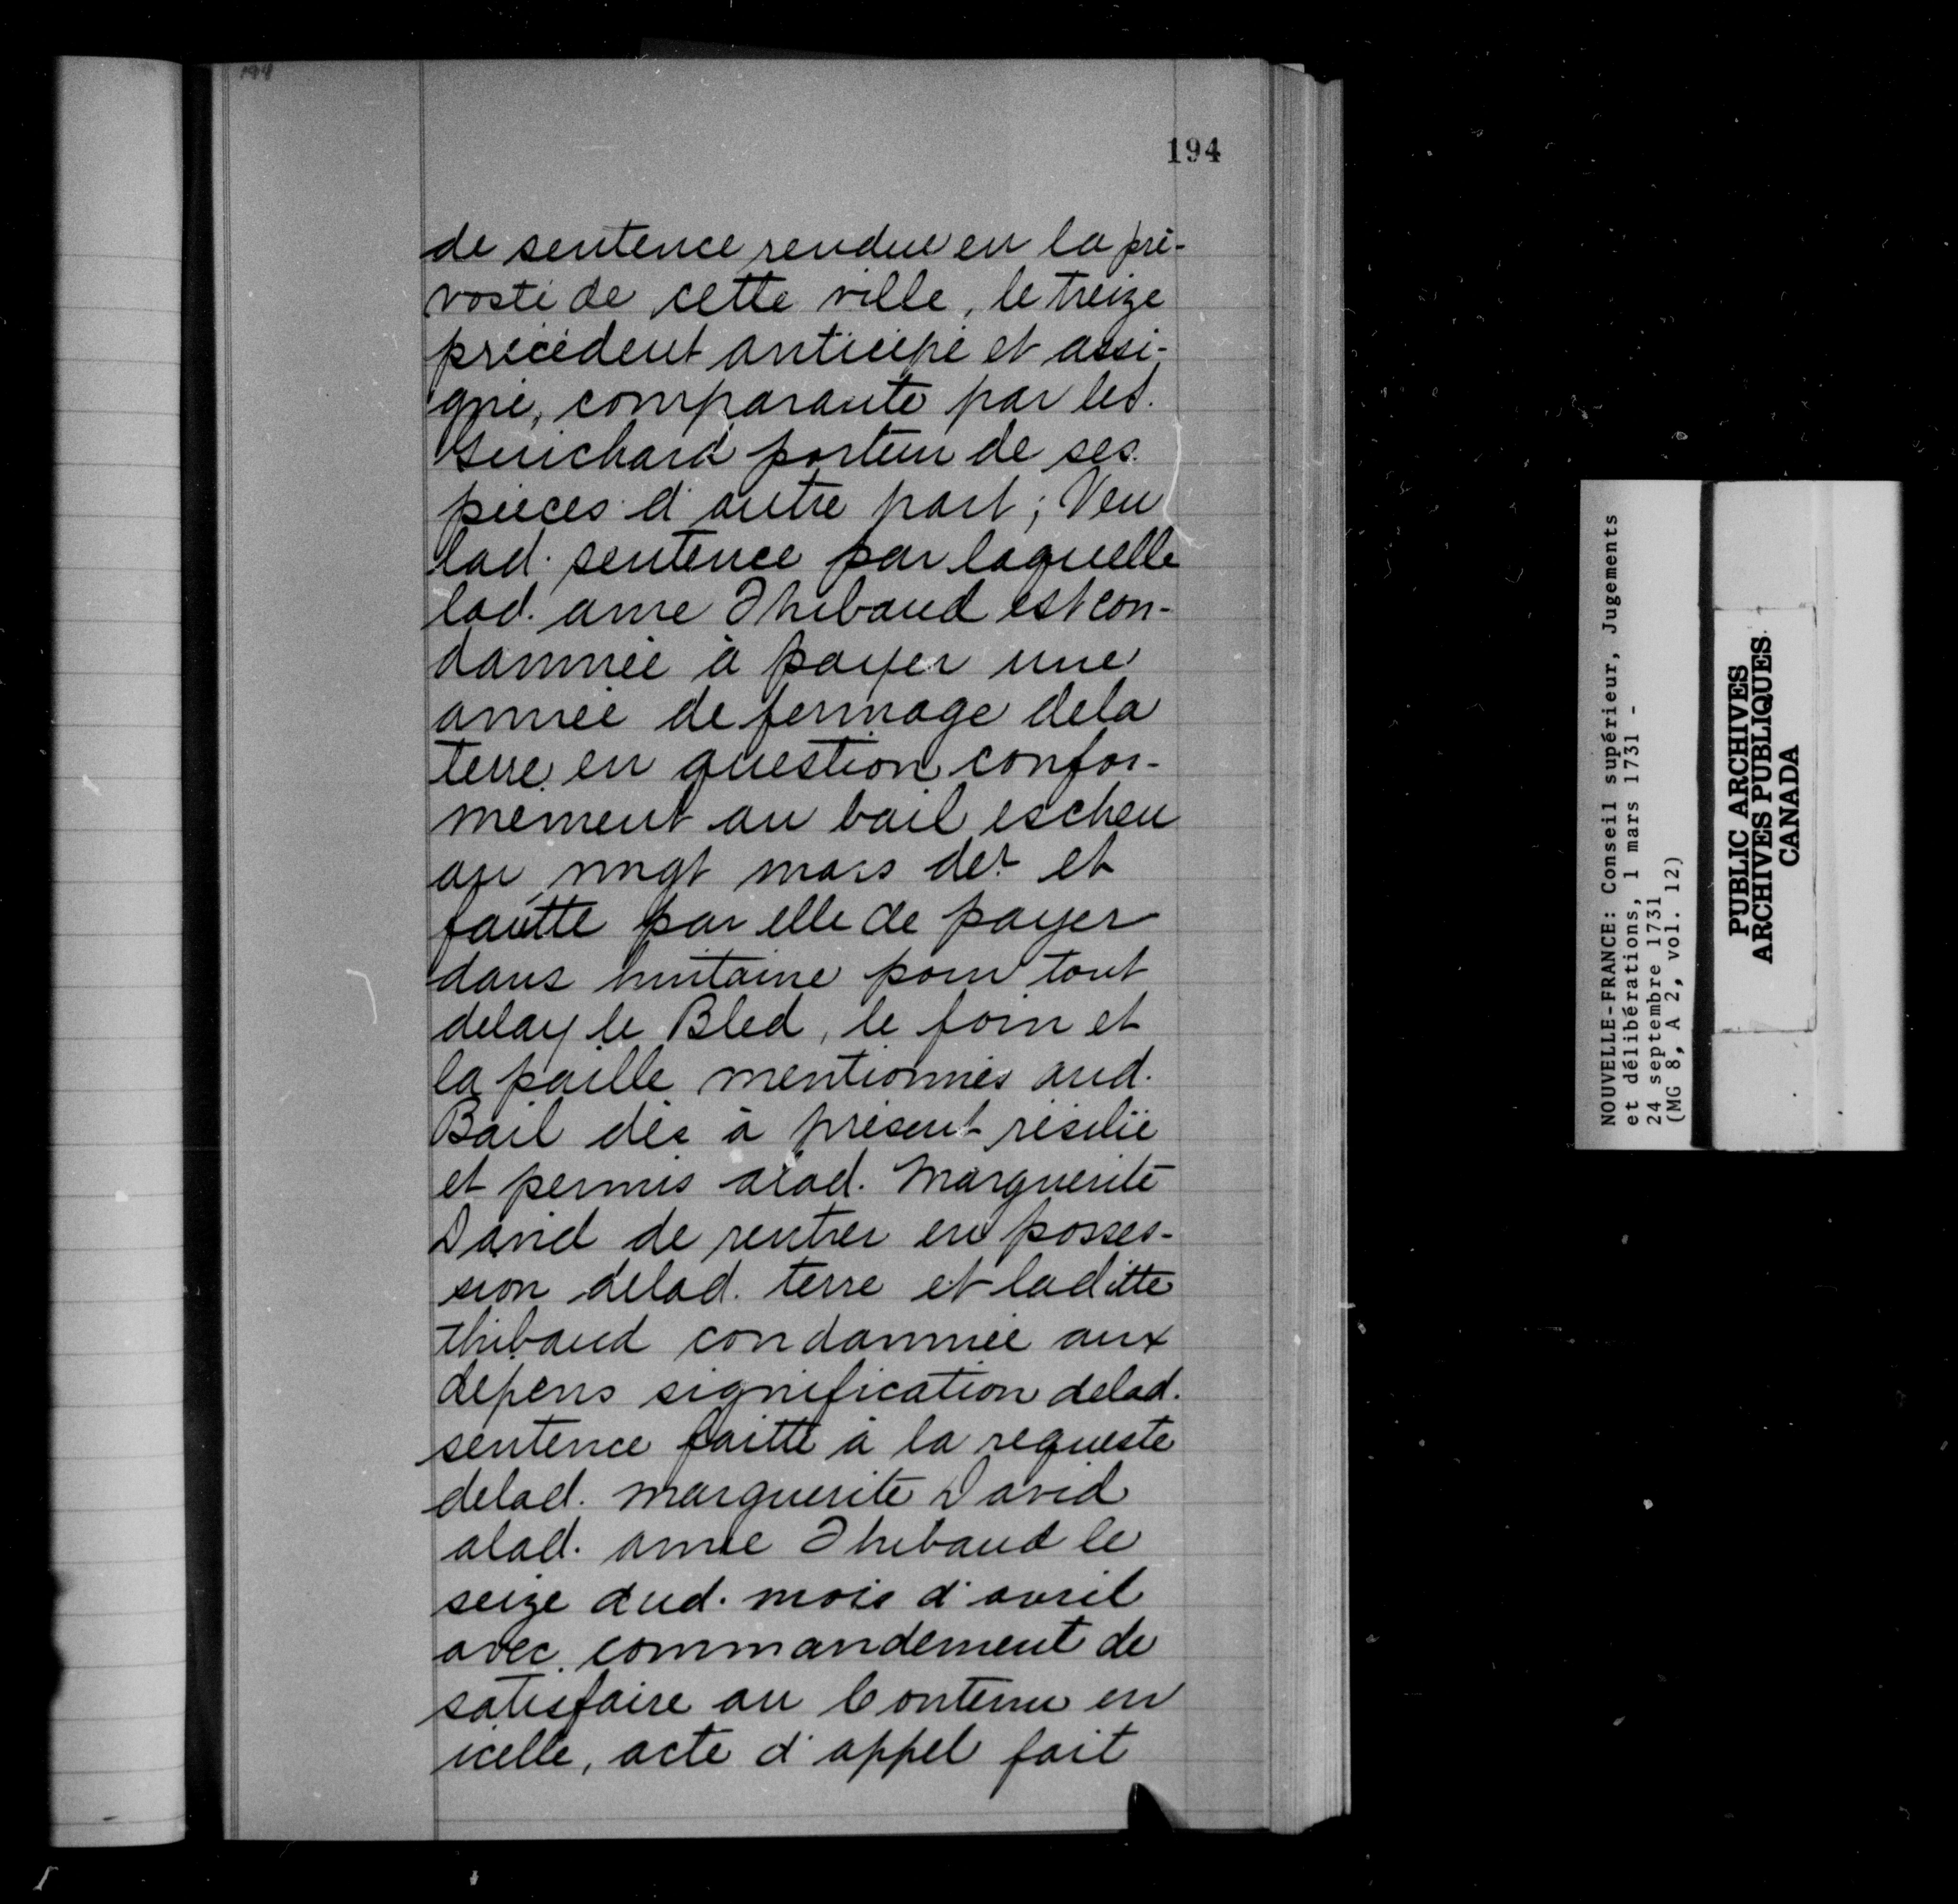 194
194
de sentence rendue en la pré-
vosté de cette ville, le treize
précédent anticipé et assi-
gné, comparante par le s.
Guichard porteur de ses
pièces d'autre part; Veu
lad. sentence par laquelle
lad. anne Thibaud est con-
damnée à payer une
année de fermage dela
terre en question confor-
mement au bail escheu
au vingt mars der et
fautte par elle de payer
dans huitaine pour tout
delay le Bled, le foin et
la paille mentionnés aud.
Bail dès à présent résilié
et permis alad. Marguerite
David de rentrer en posses-
sion delad. terre et laditte
thibaud condamnée aux
depens signification delad.
sentence faitte à la requeste
delad. marguerite David
alad. anne Thibaud le
seize dud. mois d'avril
avec commandement de
satisfaire au Contenu en
icelle, acte d'appel fait
NOUVELLE-FRANCE: Conseil supérieur, Jugements
et délibérations, 1 mars 1731 -
24 septembre 1731
(MG 8, A 2, vol. 12)
PUBLIC ARCHIVES
ARCHIVES PUBLIQUES
CANADA